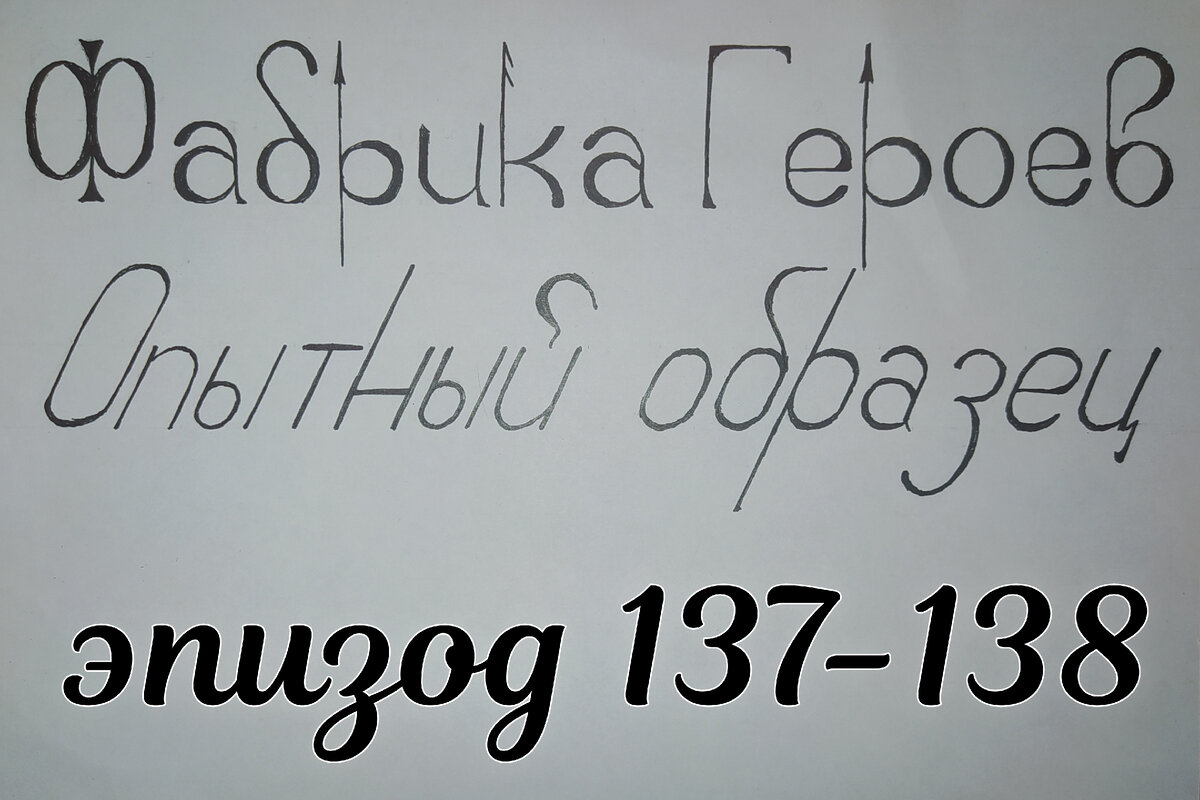 Фабрика Героев
Опытный образец
эпизод 137-138